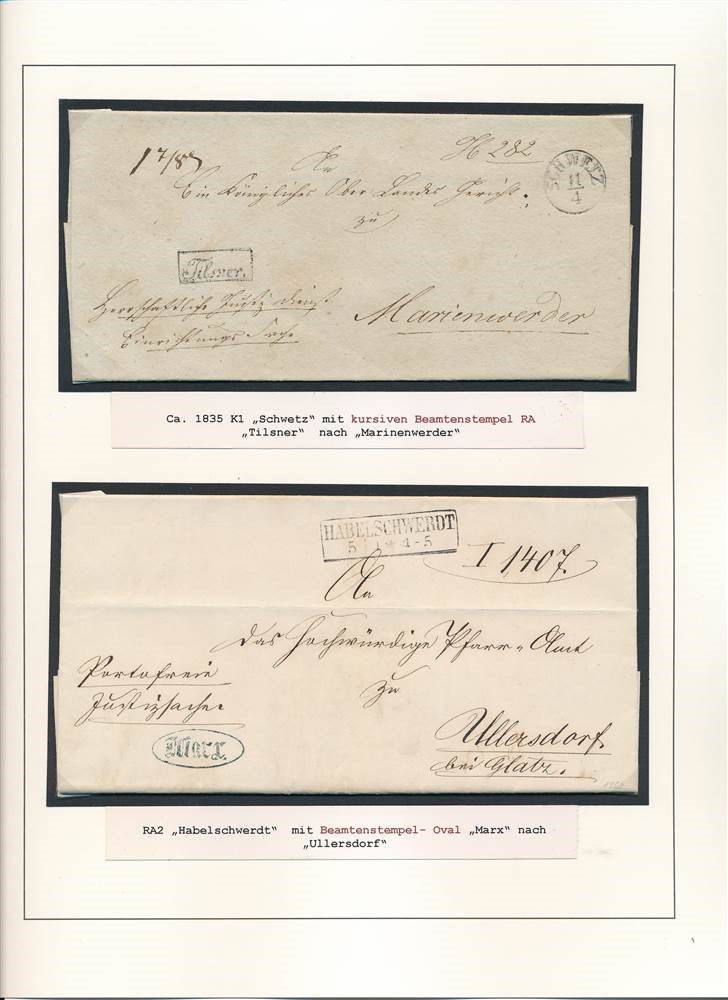 17/87
H 282
An
Ein Königliches Ober Landes Gericht.
zu
SCHWETZ
11
4
Tilsner.
Herrschaftliche Justiz dienst
Einrichtungs Sache
Marienwerder
Ca. 1835 K1 „Schwetz“ mit kursiven Beamtenstempel RA
„Tilsner“ nach „Marinenwerder“
HABELSCHWERDT
5 1 * 4-5
I 1407.
An
das Hochwürdige Pfarr-Amt
zu
Portofreie
Justizsache.
Marx.
Ullersdorf.
bei Glatz.
RA2 „Habelschwerdt“ mit Beamtenstempel- Oval „Marx“ nach
„Ullersdorf“